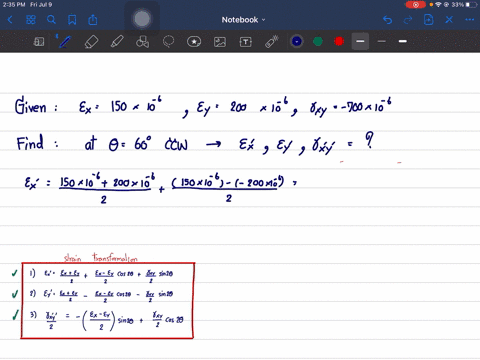 2:35 PM Fri Jul 9
33%
Notebook
Given : εx = 150 × 10⁻⁶ , εy = 200 × 10⁻⁶, γxy = -700 × 10⁻⁶
Find : at θ = 60° CCW → εx', εy', γx'y' = ?
εx' = (150 × 10⁻⁶ + 200 × 10⁻⁶)/2 + ((150 × 10⁻⁶) - (-200 × 10⁻⁶))/2 =
strain transformation
1) εx' = (εx + εy)/2 + (εx - εy)/2 cos 2θ + γxy/2 sin 2θ
2) εy' = (εx + εy)/2 - (εx - εy)/2 cos 2θ - γxy/2 sin 2θ
3) γx'y'/2 = -((εx - εy)/2) sin 2θ + γxy/2 cos 2θ